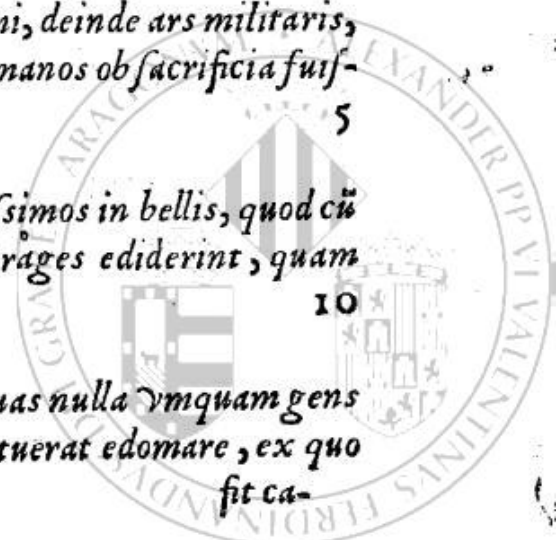 ni, deinde ars militaris,
manos ob sacrificia fuiſ-
5
ſsimos in bellis, quod cū
rages ediderint, quam
10
uas nulla vmquam gens
tuerat edomare, ex quo
fit ca-
ALEXANDER PP VI VALENTINVS FERDINANDVS